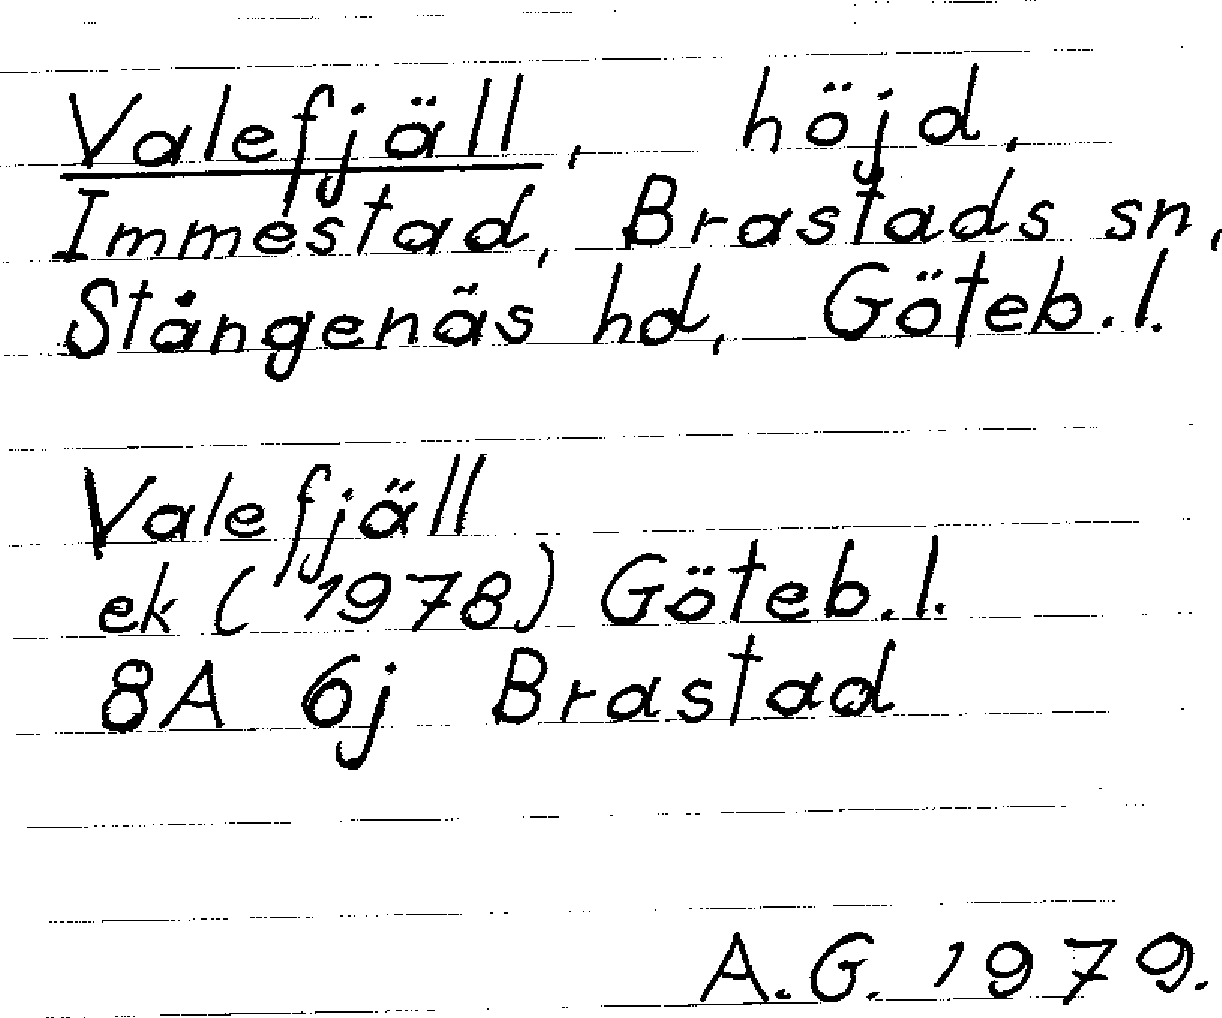 Valefjäll, höjd,
Immestad, Brastads sn,
Stångenäs hd, Göteb.l.
Valefjäll
ek (1978) Göteb.l.
8A 6j Brastad
A.G. 1979.